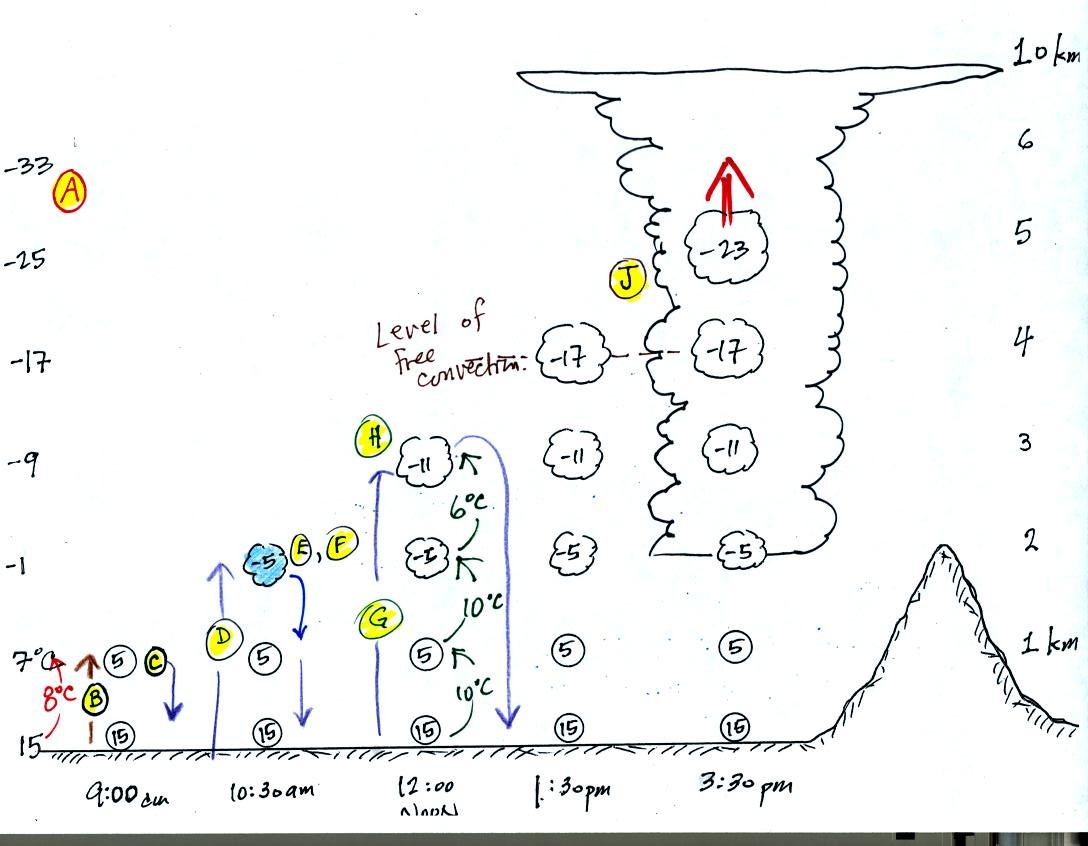 10 km
-33
6
A
5
-25
-23
J
Level of
free
convection:
-17
-17
-17
4
H
-9
-11
-11
-11
3
6°C
-1
-5
E, F
-5
-5
2
10°C
G
D
7°C
5
C
5
5
5
5
1 km
8°C
B
10°C
15
15
15
15
15
15
9:00 am
10:30am
12:00
Noon
1:30pm
3:30pm